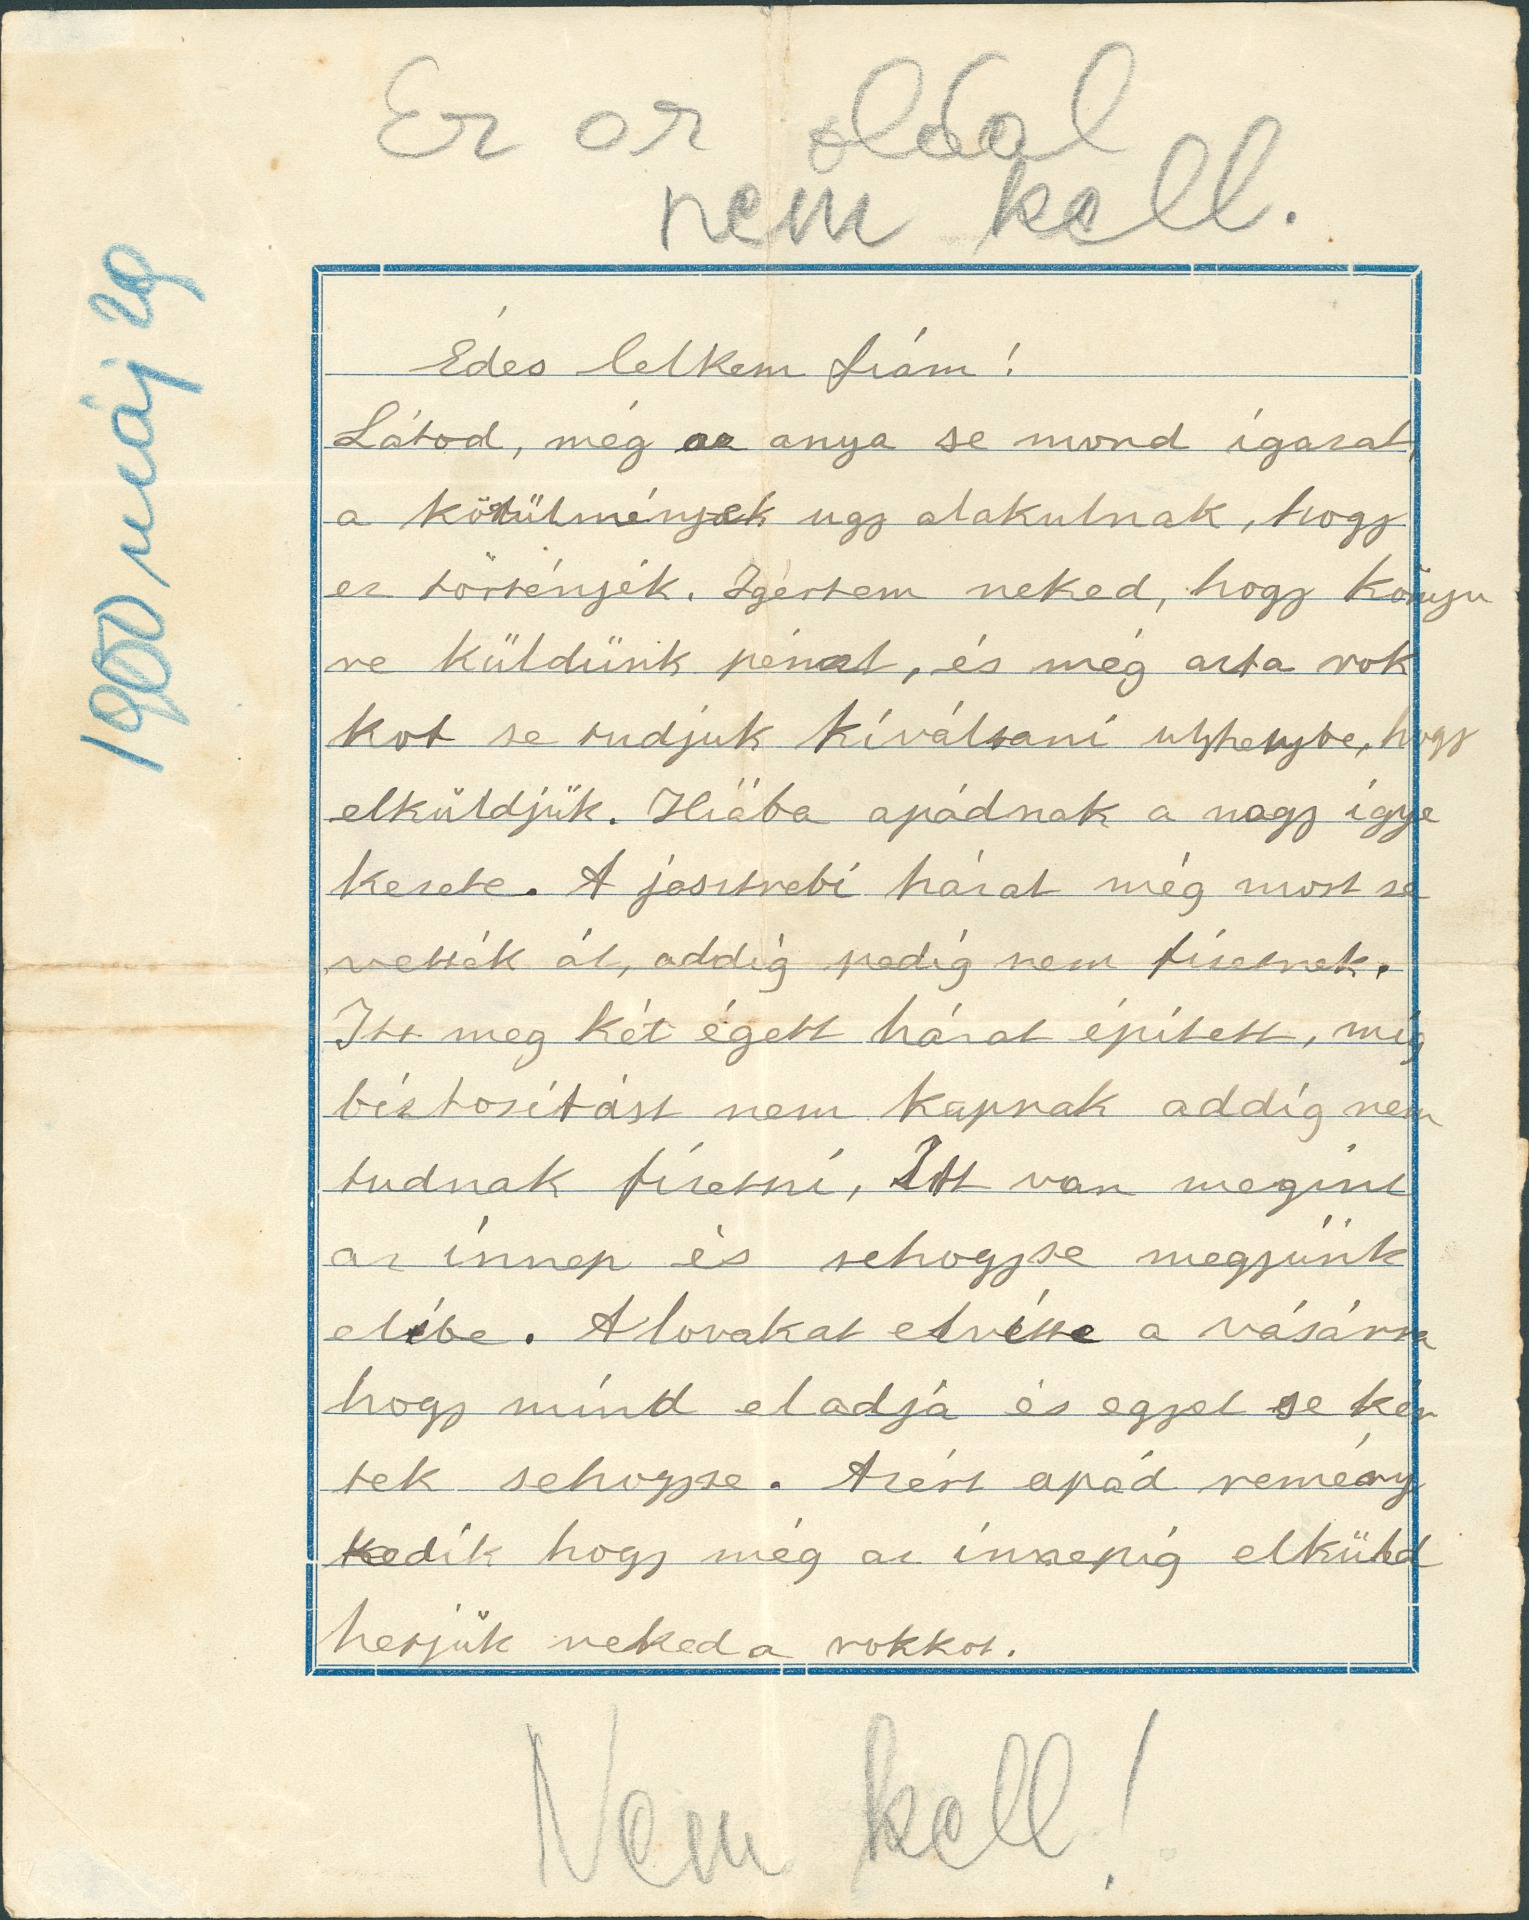 Ez az oldal
nem kell.
1950 máj 29
Édes lelkem fiám!
Látod, még az anya se mond igazat,
a körülmények ugy alakulnak, hogy
ez történjék. Igértem neked, hogy könyv
re küldünk pénzt, és még azta rok
kot se tudjuk kiváltani ujhelybe, hogy
elküldjük. Hiába apádnak a nagy igye
kezete. A jasztrebi házat még most se
vették át, addig pedig nem fizetnek.
Itt meg két égett házat épitett, mig
biztositást nem kapnak addig nem
tudnak fizetni, Itt van megint
az innep és sehogyse megyünk
elibe. A lovakat elvitte a vásárra
hogy mind eladja és egyet se kér
tek sehogyse. Azért apád remény
kedik hogy még az innepig elküld
hetjük neked a rokkot.
Nem kell!